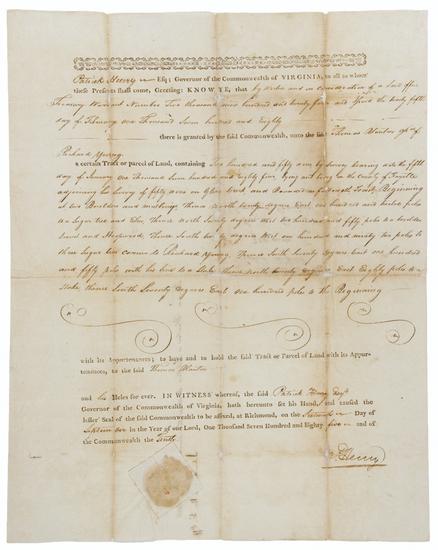 Patrick Henry Esq; Governor of the Commonwealth of VIRGINIA, to all to whom
these Presents shall come, Greeting: KNOW YE, that by virtue and in consideration of a Land Office
Treasury Warrant Number Two thousand nine hundred and twenty four and Issued the
day of February one Thousand Seven hundred and Eighty
there is granted by the said Commonwealth, unto the said Thomas
Richard Young
a certain Tract or Parcel of Land, containing hundred and fifty acres by Survey bearing date the fifth
day of January one Thousand Seven hundred and Eighty five lying and being in the County of Fayette
adjoining the Survey of fifty acres on Beginning
at two thence North twenty degrees West one hundred and twelve poles
to a Sugar tree and Elm Thence North Seventy degrees West two hundred and fifty poles to a
and Thence South twenty degrees West one hundred and ninety two poles to
three Sugar trees corner to Richard Young Thence South Seventy degrees East one hundred
and fifty poles with his line to a Stake thence North twenty degrees East Eighty poles to a
Stake thence South Seventy degrees East one hundred poles to the Beginning
with its Appurtenances; to have and to hold the said Tract or Parcel of Land with its Appur-
tenances, to the said Thomas
and his Heirs for ever. IN WITNESS whereof, the said Patrick Henry Esqr
Governor of the Commonwealth of Virginia, hath hereunto set his Hand, and caused the
lesser Seal of the said Commonwealth to be affixed, at Richmond, on the Day of
in the Year of our Lord, One Thousand Seven Hundred and Eighty five and of
the Commonwealth the Tenth
P. Henry